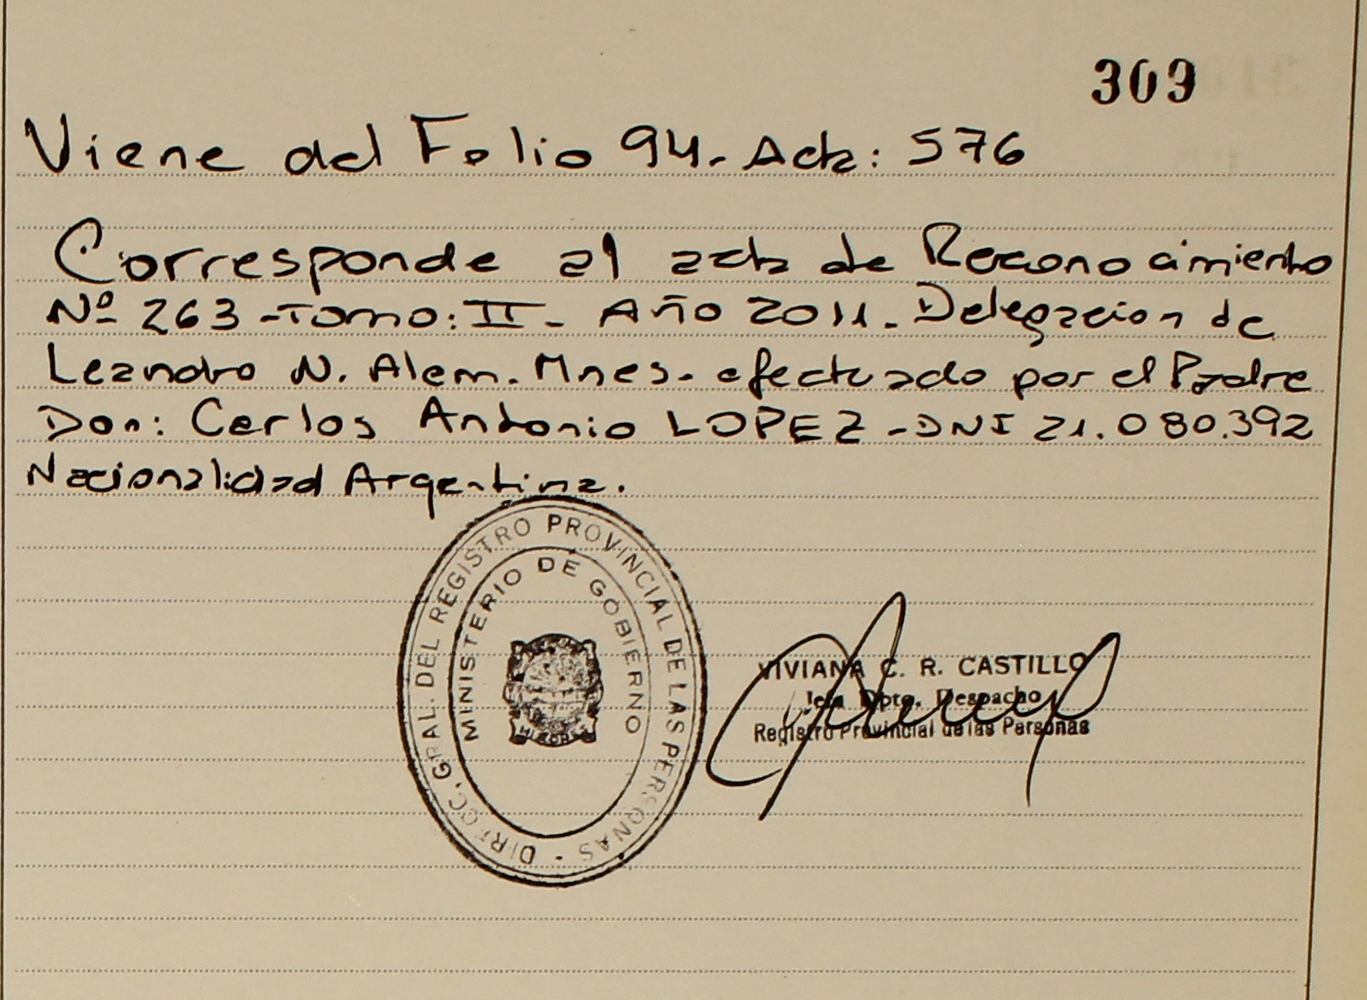 309
Viene del Folio 94. Acta: 576
Corresponde al acta de Reconocimiento
Nº 263 - Tomo: II - Año 2011. Delegacion de
Leandro N. Alem. Mnes. efectuado por el Padre
Don: Carlos Antonio LOPEZ - DNI 21.080.392
Nacionalidad Argentina.
DIRECC. GRAL. DEL REGISTRO PROVINCIAL DE LAS PERSONAS -
MINISTERIO DE GOBIERNO
MISIONES
VIVIANA C. R. CASTILLO
Jefa Dpto. Despacho
Registro Provincial de las Personas